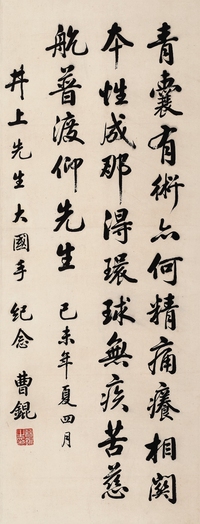 青囊有術亦何精痛癢相関
本性成那得環球無疾苦慈
航普渡仰先生 己未年夏四月
井上先生大國手 纪念 曹錕